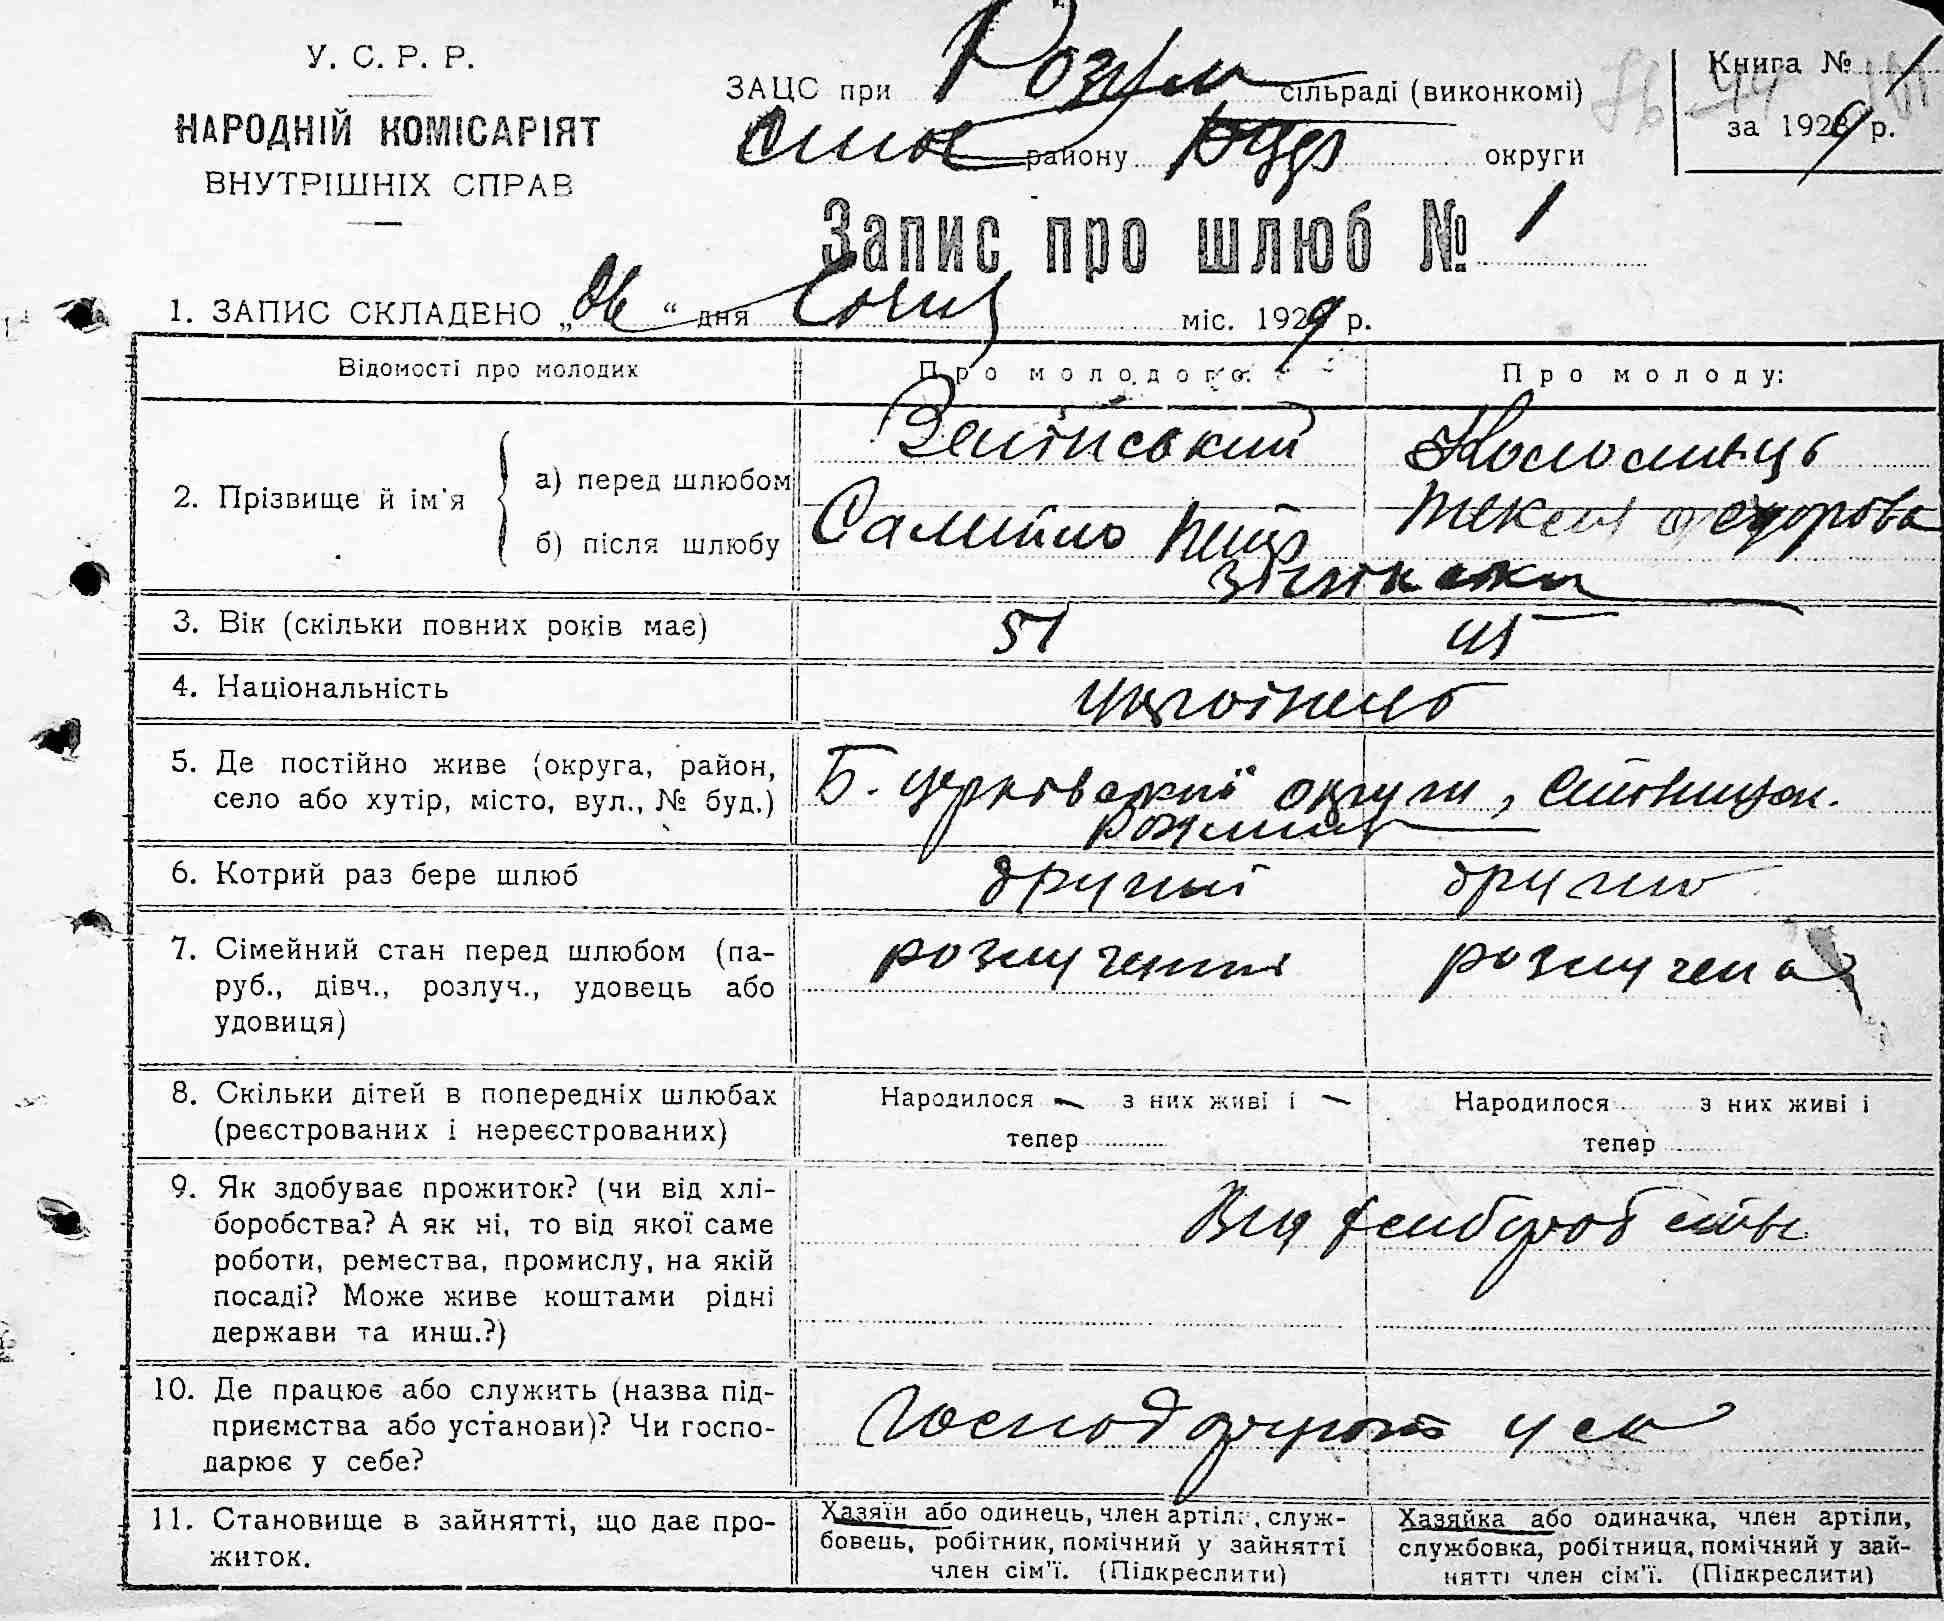 У. С. Р. Р.
НАРОДНІЙ КОМІСАРІЯТ
ВНУТРІШНІХ СПРАВ
ЗАЦС при Розум сільраді (виконкомі)
району округи
Книга № 1
за 1929 р.
Запис про шлюб № 1
1. ЗАПИС СКЛАДЕНО „06“ дня Січня міс. 1929 р.
Відомості про молодих
Про молодого:
Про молоду:
2. Прізвище й ім'я
а) перед шлюбом
б) після шлюбу
Самійло Петр
Федорова
3. Вік (скільки повних років має)
51
45
4. Національність
українець
5. Де постійно живе (округа, район,
село або хутір, місто, вул., № буд.)
Б. церківської округи,
6. Котрий раз бере шлюб
другий
другий
7. Сімейний стан перед шлюбом (па-
руб., дівч., розлуч., удовець або
удовиця)
розлучений
розлучена
8. Скільки дітей в попередніх шлюбах
(реєстрованих і нереєстрованих)
Народилося — з них живі і —
тепер
Народилося з них живі і
тепер
9. Як здобуває прожиток? (чи від хлі-
боробства? А як ні, то від якої саме
роботи, ремества, промислу, на якій
посаді? Може живе коштами рідні
держави та инш.?)
Від хліборобства
10. Де працює або служить (назва під-
приємства або установи)? Чи госпо-
дарює у себе?
11. Становище в зайнятті, що дає про-
житок.
Хазяїн або одинець, член артілі, служ-
бовець, робітник, помічний у зайнятті
член сім'ї. (Підкреслити)
Хазяйка або одиначка, член артіли,
службовка, робітниця, помічний у зай-
нятті член сім'ї. (Підкреслити)